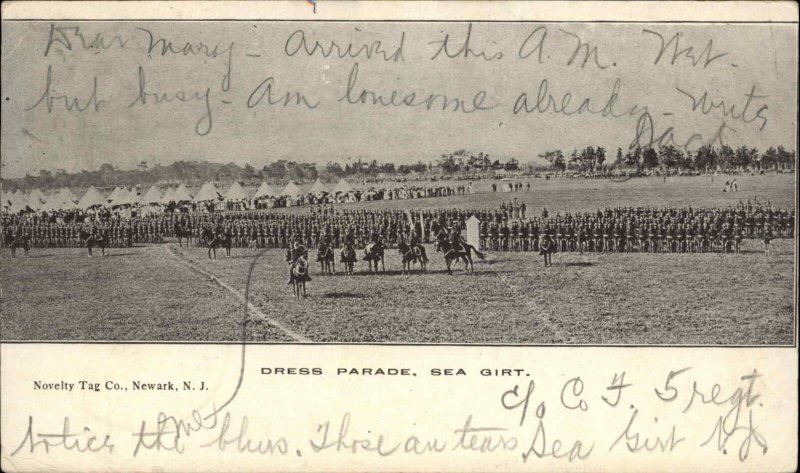 Dear Mary - Arrived this A.M. Wet.
but busy - Am lonesome already - Write
Jack
DRESS PARADE, SEA GIRT.
Novelty Tag Co., Newark, N. J.
c/o Co F. 5 regt.
me
Notice the blurs. Those are tears. Sea Girt N.J.